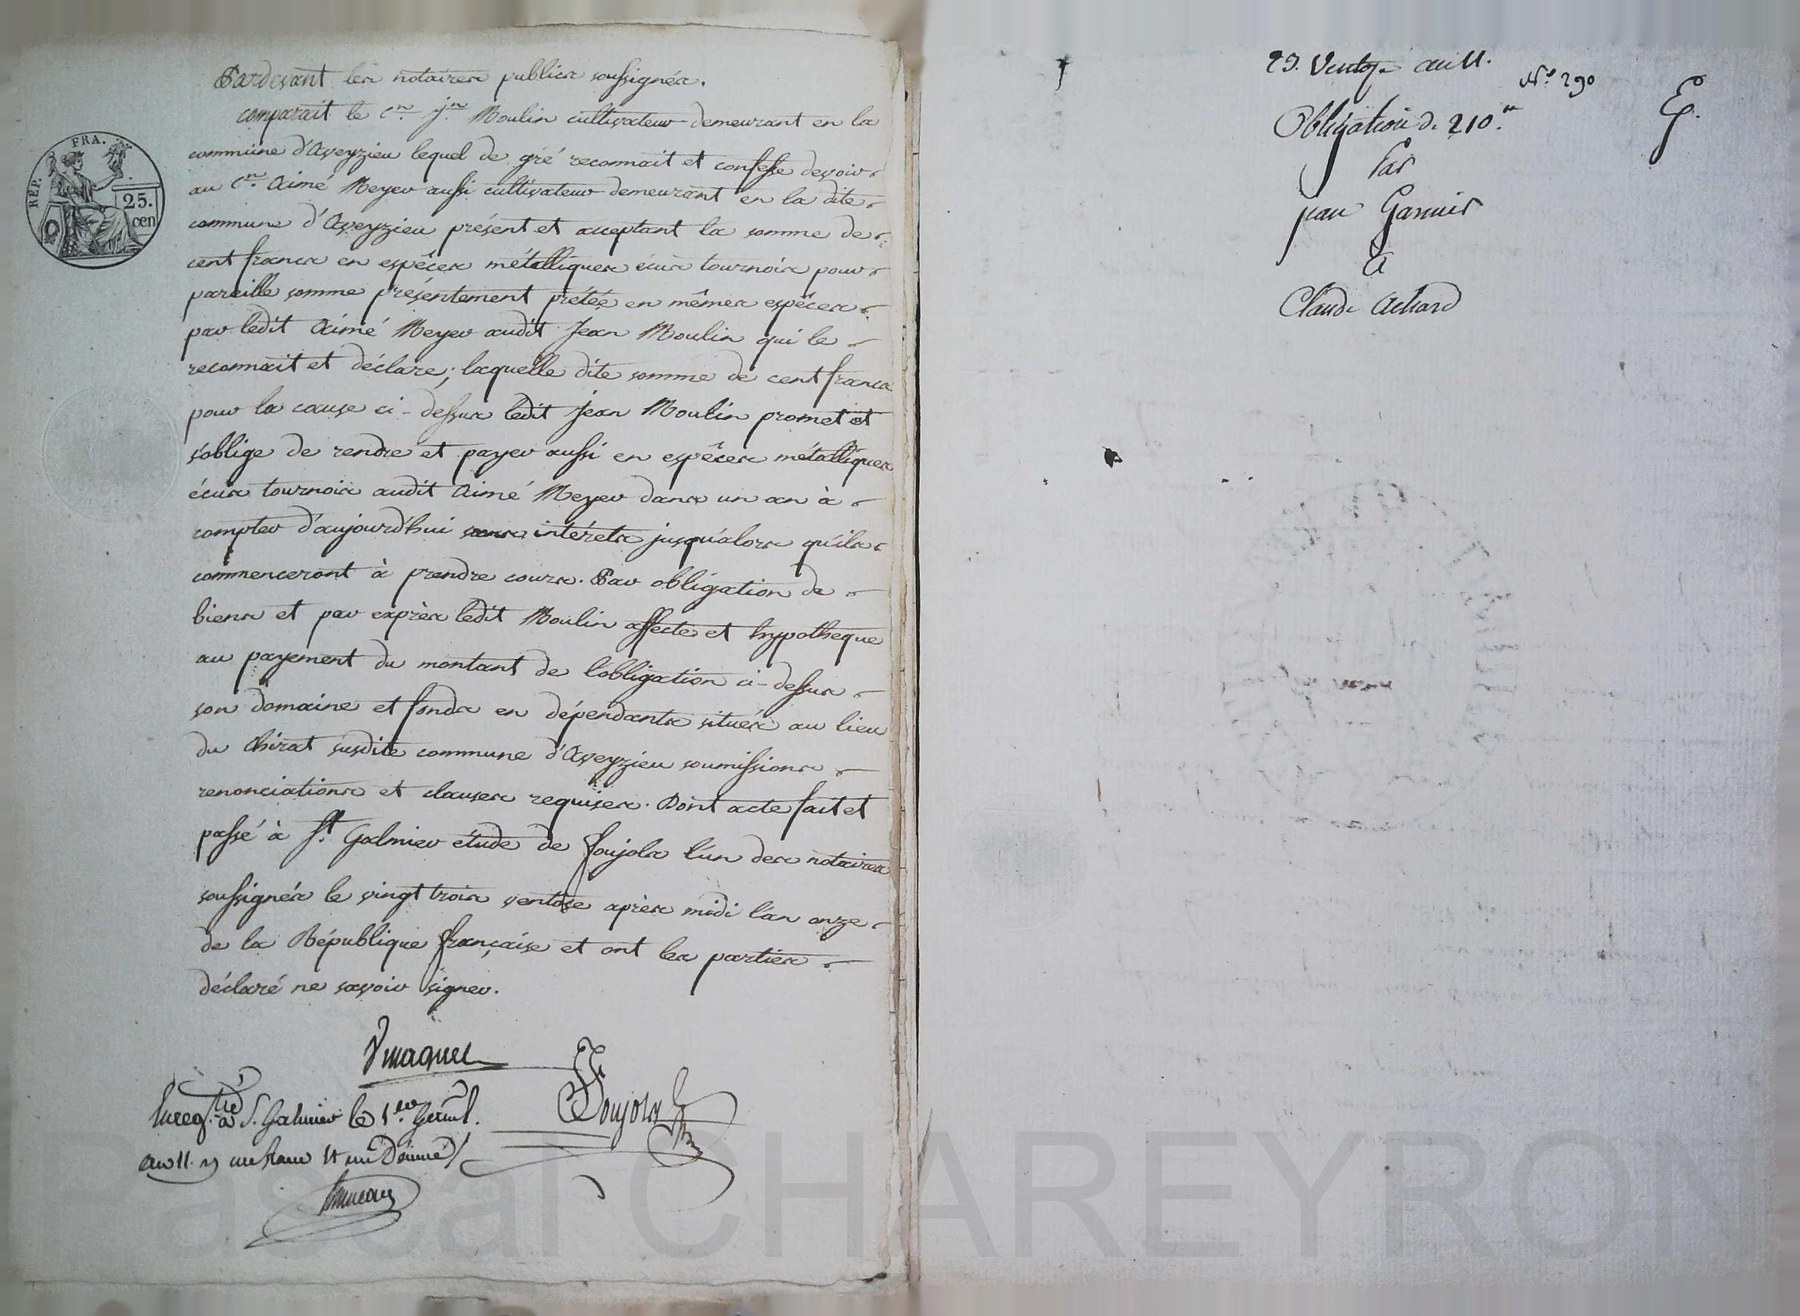 RÉP. FRA.
25.
cen
Pardevant les notaires publics soussignés.
comparait le c.en j.n Moulin cultivateur demeurant en la
commune d'Aveyzieu lequel de gré reconnait et confesse devoir
au c.en Aimé Meyer aussi cultivateur demeurant en la dite
commune d'Aveyzieu présent et acceptant la somme de
cent francs en espêces métalliques écus tournois pour
pareille somme présentement prêtée en mêmes espêces
par ledit Aimé Meyer audit Jean Moulin qui le
reconnait et déclare; laquelle dite somme de cent francs
pour la cause ci-dessus ledit Jean Moulin promet et
s'oblige de rendre et payer aussi en espêces métalliques
écus tournois audit Aimé Meyer dans un an à
compter d'aujourd'hui sans intérets jusqu'alors qu'ils
commenceront à prendre cours. Par obligation de
biens et par exprès ledit Moulin affecte et hypotheque
au payement du montant de l'obligation ci-dessus
son domaine et fonds en dépendants situés au lieu
du Chirat susdite commune d'Aveyzieu soumissions
renonciations et clauses requises. Dont acte fait et
passé à St. Galmier étude de Soujols l'un des notaires
soussignés le vingt trois ventose après midi l'an onze
de la République française et ont les parties
déclaré ne savoir signer.
Soujols
Enregistré à S. Galmier le 1.er Germ.l
an 11. un franc et un Décime
23. Ventose an 11.
N.° 290
Obligation de 210.
Par
jean Garnier
A
Claude Achard
Pascal CHAREYRON